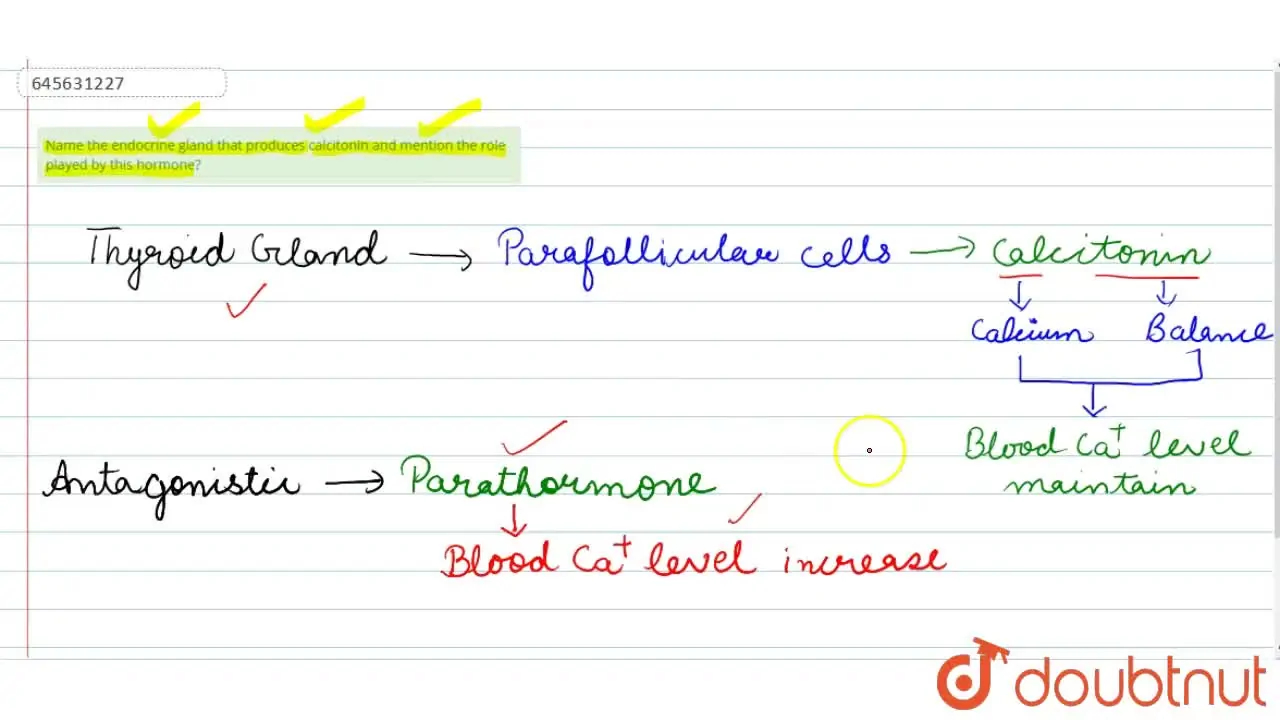 645631227
Name the endocrine gland that produces calcitonin and mention the role
played by this hormone?
Thyroid Gland → Parafollicular cells → Calcitonin
Calcium Balance
Blood Ca+ level
maintain
Antagonistic → Parathormone
Blood Ca+ level increase
doubtnut